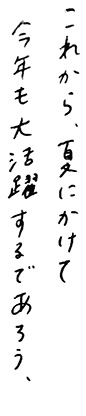 これから、夏にかけて
今年も大活躍するであろう、